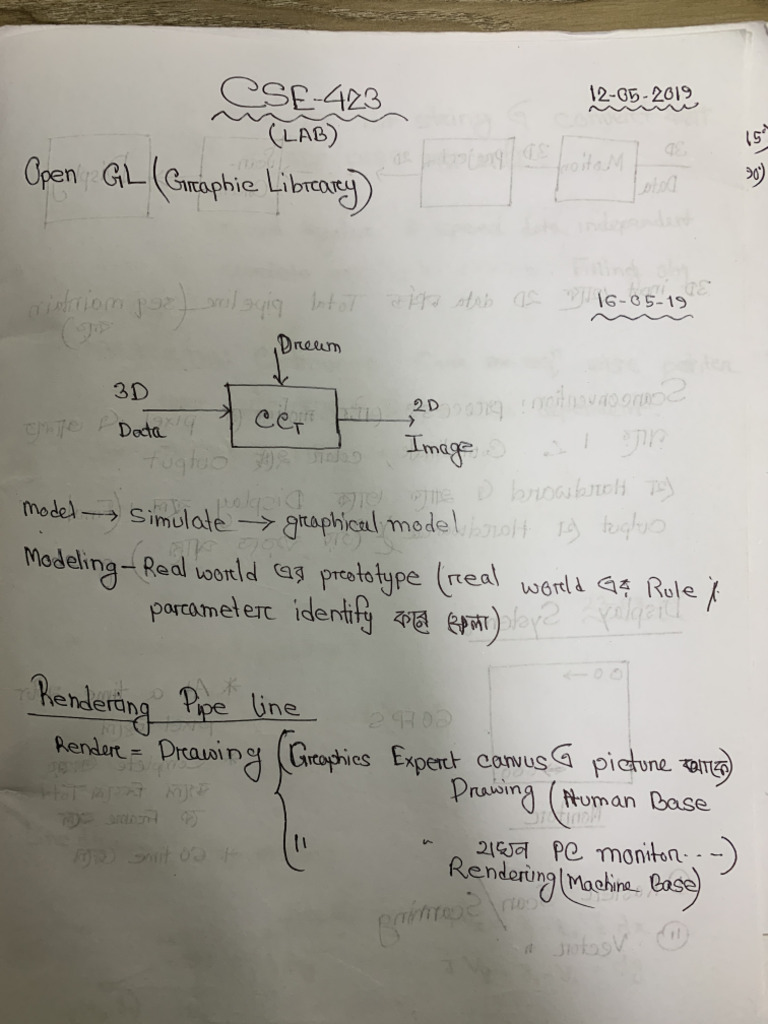 CSE-423
12-05-2019
(LAB)
Open GL (Graphic Library)
16-05-19
Dream
3D
Data
CCT
2D
Image
Model → Simulate → graphical model
Modeling - Real world এর prototype (real world এর Rule /
parameter identify করে ফেলা)
Rendering Pipe line
Render = Drawing (Graphics Expert canvus এ picture আঁকে)
Drawing (Human Base
" " যখন PC monitor...-)
Rendering (Machine Base)